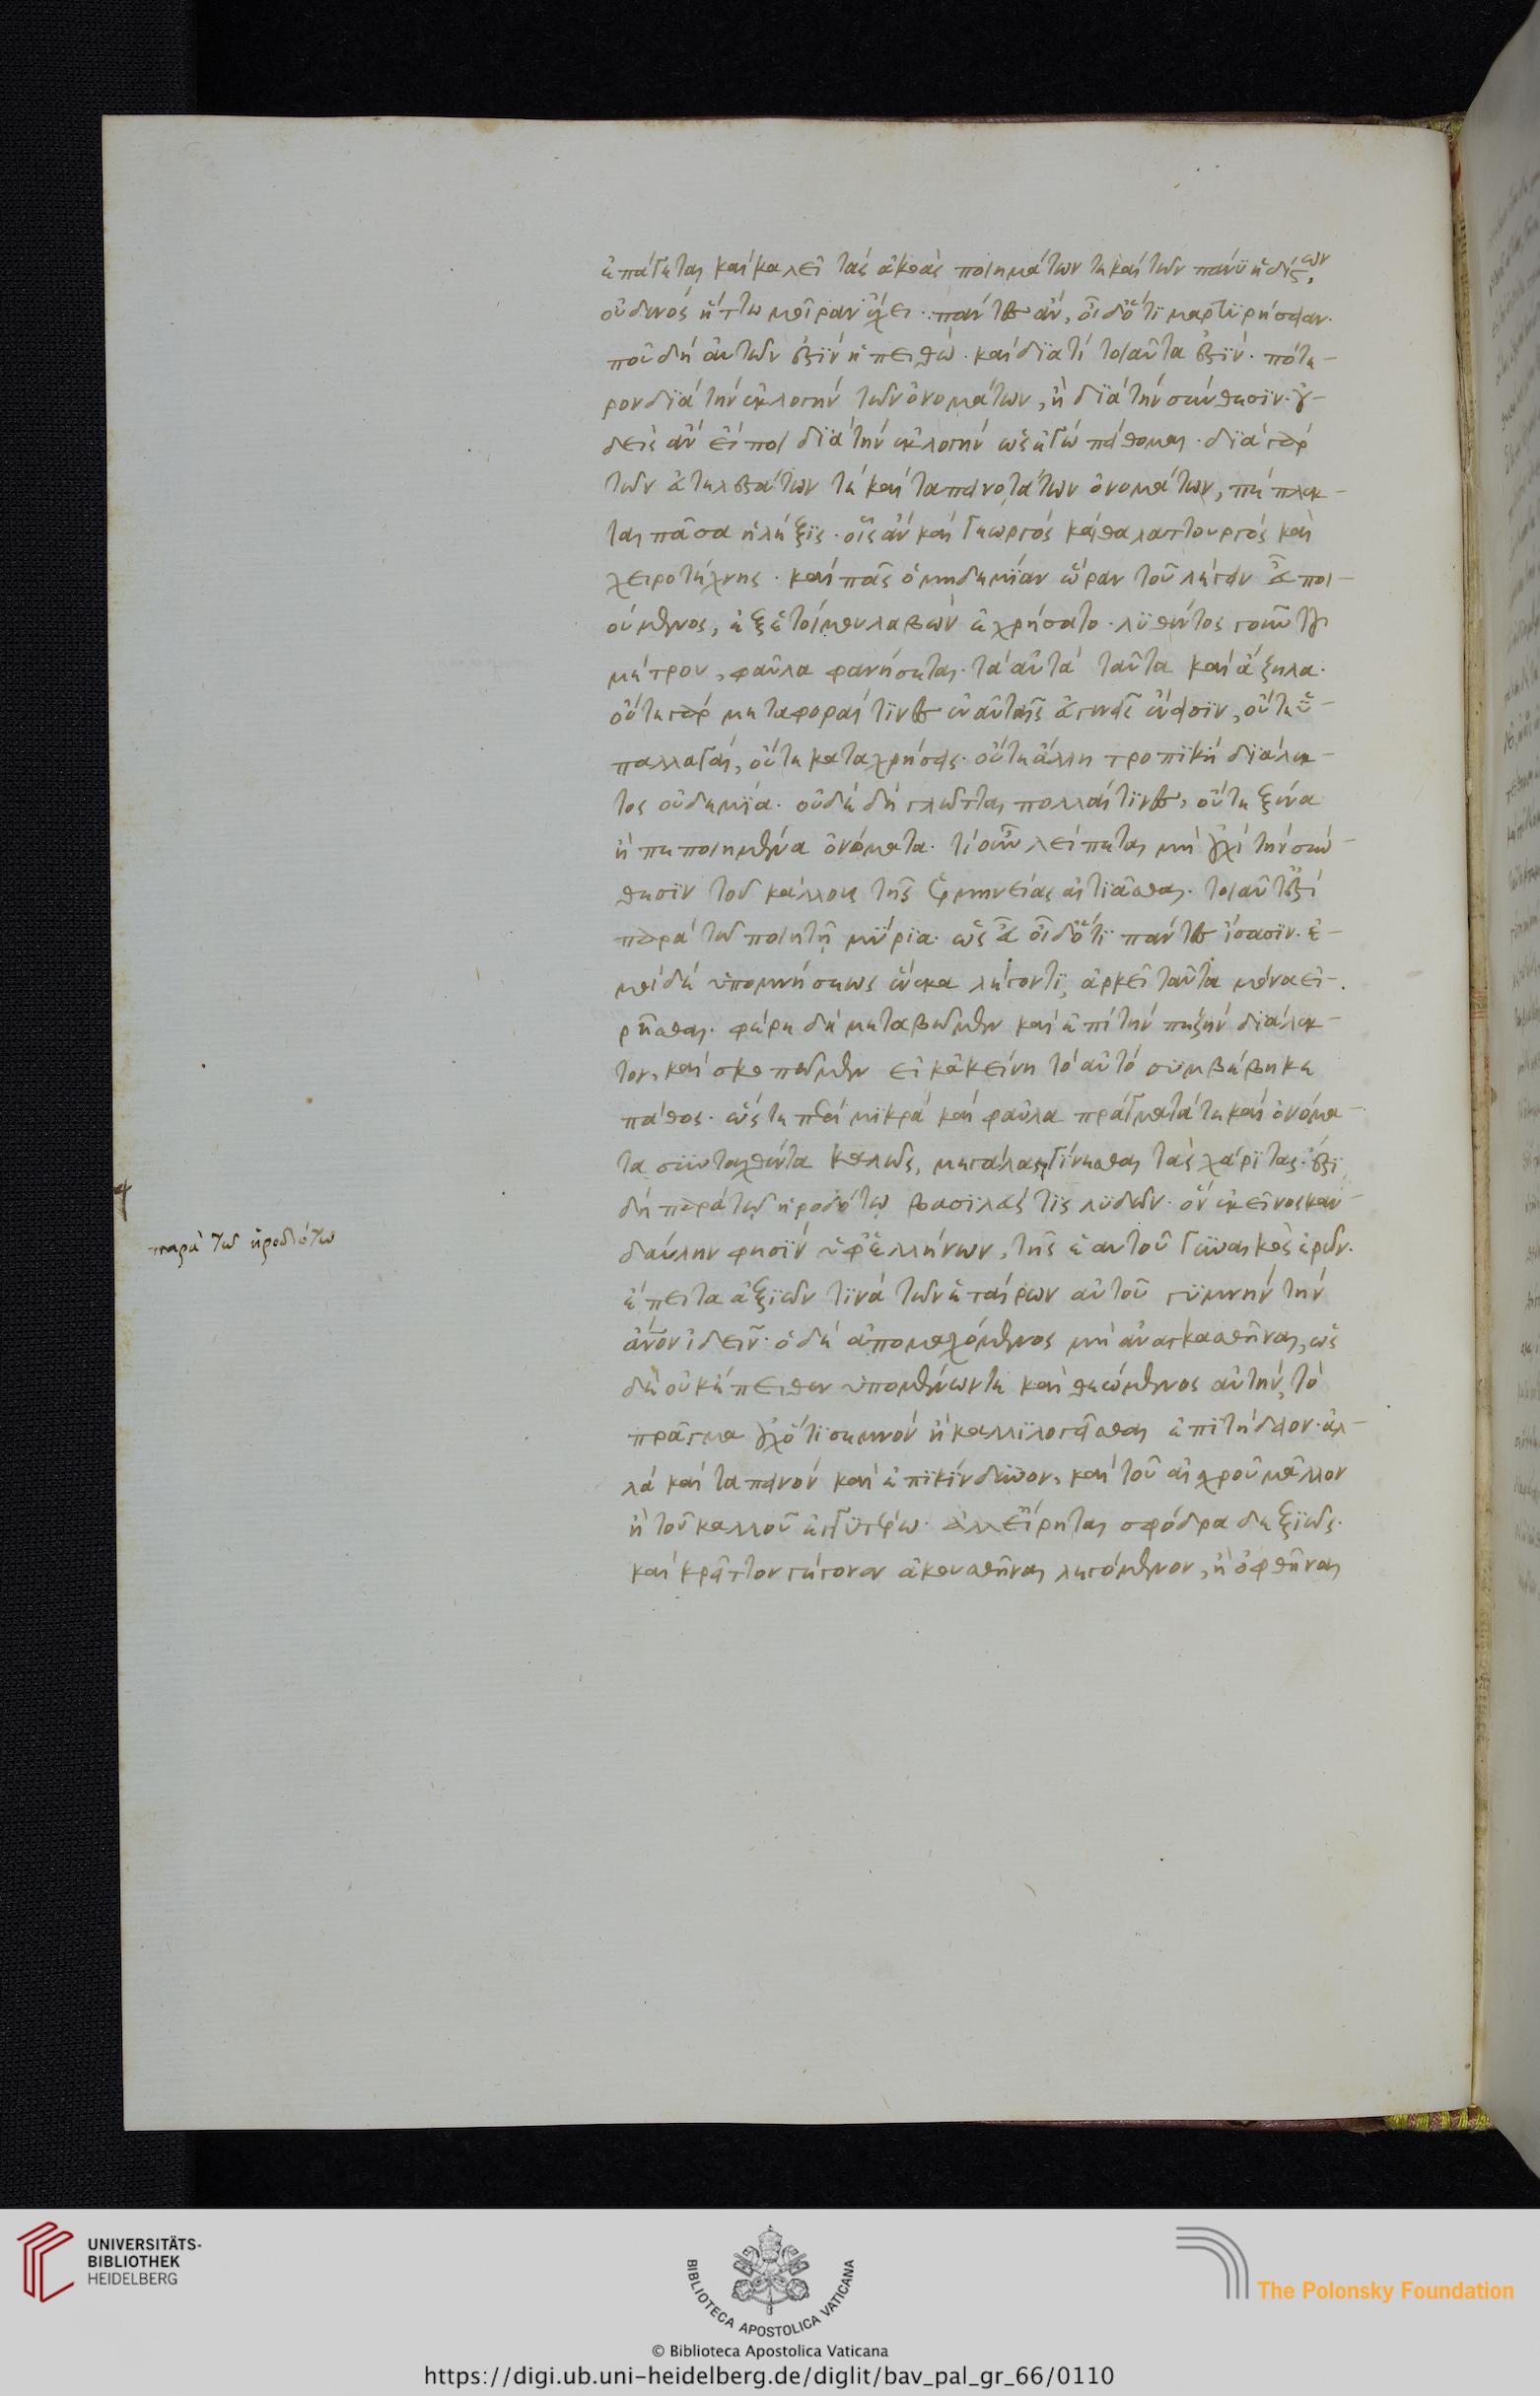 ἐπάγεται καὶ καλεῖ τὰς ἀκοὰς ποιημάτων τε καὶ τῶν πάνυ ἡδίστων,
οὐδενὸς ἥττω μοῖραν ἔχει. πάντες ἂν, οἶδ' ὅτι μαρτυρήσειαν.
ποῦ δὴ αὐτῶν ἐστὶν ἡ πειθώ. καὶ διατί τοιαῦτα ἐστίν. πότε-
ρον διὰ τὴν ἐκλογὴν τῶν ὀνομάτων, ἢ διὰ τὴν σύνθεσιν. οὐ-
δεὶς ἂν εἴποι διὰ τὴν ἐκλογὴν ὡς ἐγὼ πείθομαι. διὰ γὰρ
τῶν εὐτελεστάτων τὲ καὶ ταπεινοτάτων ὀνομάτων, πέπλεκ-
ται πᾶσα ἡ λέξις. οἷς ἂν καὶ γεωργὸς καὶ θαλαττουργὸς καὶ
χειροτέχνης. καὶ πᾶς ὁ μηδεμίαν ὥραν τοῦ λέγειν εὖ ποι-
ούμενος, ἐξ ἑτοίμου λαβὼν ἐχρήσατο. λυθέντος γοῦν τοῦ
μέτρου, φαῦλα φανήσεται. τὰ αὐτὰ ταῦτα καὶ ἄζηλα.
οὔτε γὰρ μεταφοραί τινες ἐν αὐταῖς εὐγενεῖς ἔνεισιν, οὔτε ὑ-
παλλαγαὶ, οὔτε καταχρήσεις. οὔτε ἄλλη τροπικὴ διάλεκ-
τος οὐδεμία. οὐδὲ δὴ γλῶτται πολλαί τινες, οὔτε ξένα
ἢ πεποιημένα ὀνόματα. τί οὖν λείπεται μὴ οὐχὶ τὴν σύν-
θεσιν τοῦ κάλλους τῆς ἑρμηνείας αἰτιᾶσθαι. τοιαῦτ' ἐστὶ
παρὰ τῷ ποιητῇ μύρια. ὡς εὖ οἶδ' ὅτι πάντες ἴσασιν. ἐ-
μοὶ δὲ ὑπομνήσεως ἕνεκα λέγοντι, ἀρκεῖ ταῦτα μόνα εἰ-
ρῆσθαι. φέρε δὴ μεταβῶμεν καὶ ἐπὶ τὴν πεζὴν διάλεκ-
τον, καὶ σκοπῶμεν εἰ κἀκείνη τὸ αὐτὸ συμβέβηκε
πάθος. ὥστε περὶ μικρὰ καὶ φαῦλα πράγματά τε καὶ ὀνόμα-
τα συνταχθέντα καλῶς, μεγάλας γίνεσθαι τὰς χάριτας. ἐστὶ
δὴ παρὰ τῷ ἡροδότῳ βασιλεύς τις λυδῶν. ὃν ἐκεῖνος καν-
δαύλην φησὶν ὑφ' ἑλλήνων, τῆς ἑαυτοῦ γυναικὸς ἐρῶν.
ἔπειτα ἀξιῶν τινὰ τῶν ἑταίρων αὐτοῦ γυμνὴν τὴν
ἄνον ἰδεῖν. ὁ δὲ ἀπομαχόμενος μὴ ἀναγκασθῆναι, ὡς
δὲ οὐκ ἔπειθεν ὑπομένων τε καὶ θεώμενος αὐτήν, τὸ
πρᾶγμα οὐχ ὅτι σεμνὸν ἢ καλλιλογεῖσθαι ἐπιτήδειον. ἀλ-
λὰ καὶ ταπεινὸν καὶ ἐπικίνδυνον, καὶ τοῦ αἰσχροῦ μᾶλλον
ἢ τοῦ καλλοῦ ἐγγυτέρω. ἀλλ' εἴρηται σφόδρα δεξιῶς.
καὶ κρεῖττον γέγονεν ἀκουσθῆναι λεγόμενον, ἢ ὀφθῆναι
παρὰ τῶ ἡροδότω
UNIVERSITÄTS-
BIBLIOTHEK
HEIDELBERG
BIBLIOTECA APOSTOLICA VATICANA
© Biblioteca Apostolica Vaticana
The Polonsky Foundation
https://digi.ub.uni-heidelberg.de/diglit/bav_pal_gr_66/0110